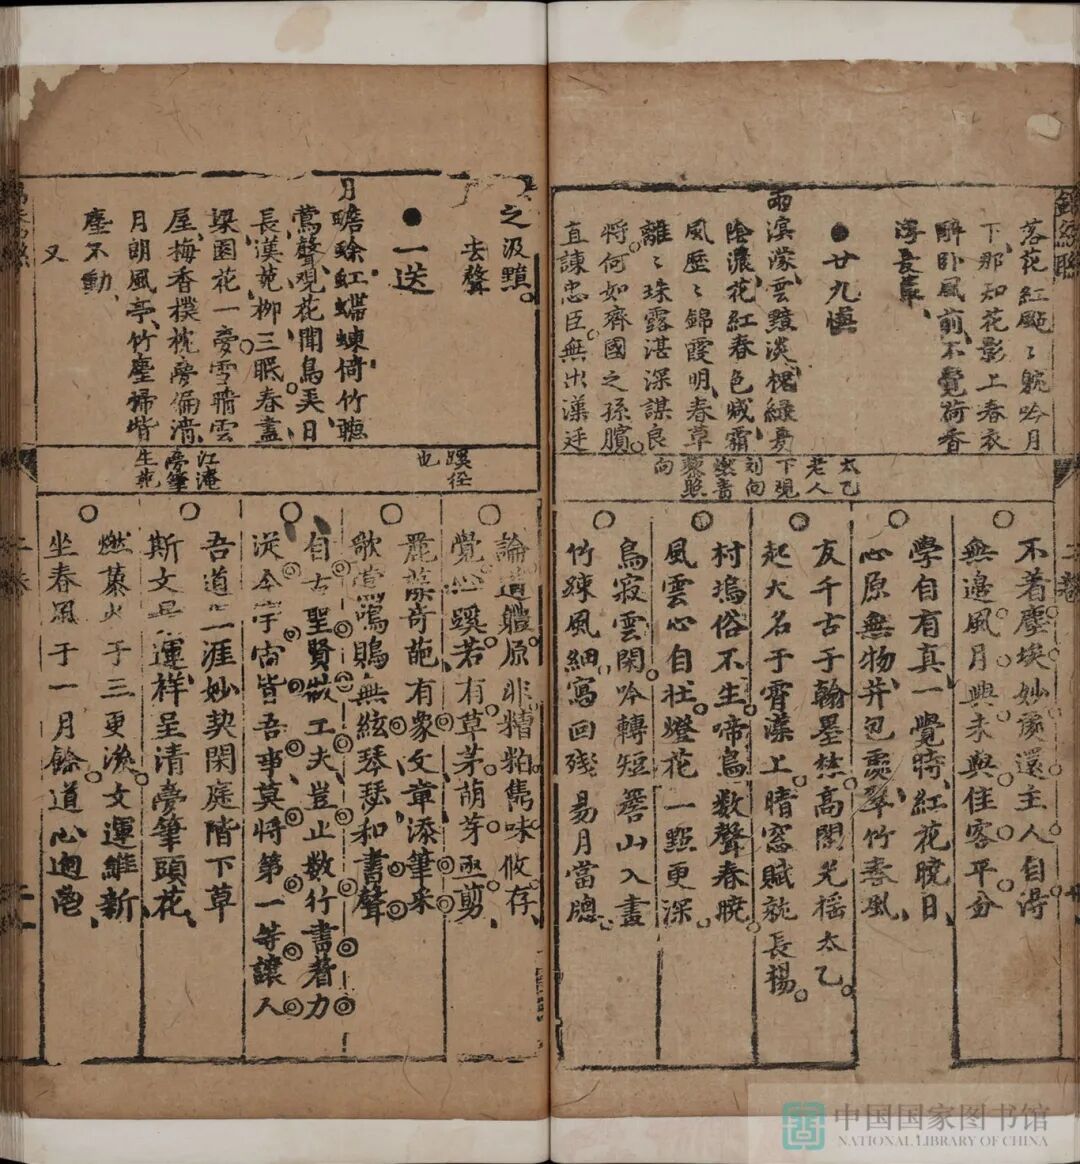 落花紅颭〻皺吟月
下那知花影上春衣
醉卧風前不覺荷香
浮長草
廿九慎
雨濛濛雲黯淡槐綠易
陰濃花紅春色減霜
風歷〻錦霞明春草
離〻珠露湛深謀良
將何如齊國之孫臏
直諫忠臣無出漢廷
太乙
老人
下覌
刘向
燃青
藜照
向
不着塵埃妙處還主人自得
無邊風月興未與佳客平分
學自有真一覺時紅花曉日
心原無物并包處翠竹春風
友千古于翰墨林高閣光搖太乙
起大名于霄藻上晴窓賦就長楊
村塢俗不生啼鳥数聲春曉
風雲心自壮燈花一點更深
鳥寂雲閑吟轉短簷山入畫
竹踈風細寫回残易月當牕
之汲黯
去聲
一送
月瞻除虹蝃蝀倚竹聴
鶯聲覌花聞鳥哢日
長漢苑栁三眠春盡
梁園花一夢雪晴雲
屋梅香樸枕夢偏清
月朗風亭竹塵掃堦
塵不動
又
蹊徑
也
江淹
夢筆
生花
論道體原非糟粕雋味攸存
覺心蹊若有草茅萌芽亟剪
麗藻奇葩有象文章添筆采
歌鶯鳴鵙無絃琴瑟和書聲
自古聖賢做工夫豈止数行書着力
從今宇宙皆吾事莫將第一等讓人
吾道一涯妙契閑庭階下草
斯文 運祥呈清夢筆頭花
燃藜火于三更後文運維新
坐春風于一月餘道心迥邁